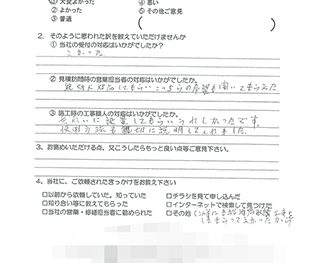 ①大変よかった ④悪い
②よかった ⑤その他ご意見
③普通 ( )
2. そのように思われた訳を教えていただけませんか
① 当社の受付の対応はいかがでしたか?
よかった
② 見積訪問時の営業担当者の対応はいかがでしたか。
親切に対応してもらい こちらの希望も聞いてもらえた
③ 施工時の工事職人の対応はいかがでしたか。
きれいに 設置してもらい うれしかったです。
使用方法も親切に説明してくれました。
3、お褒めいただける点、又こうしたらもっと良い点等ご意見下さい。
4、当社に、ご依頼されたきっかけをお教え下さい
□以前から依頼していた。知っていた □チラシを見て申し込んだ
□知り合い等に教えてもらった □インターネットで検索して見つけた
□当社の営業・修繕担当者に勧められた □その他